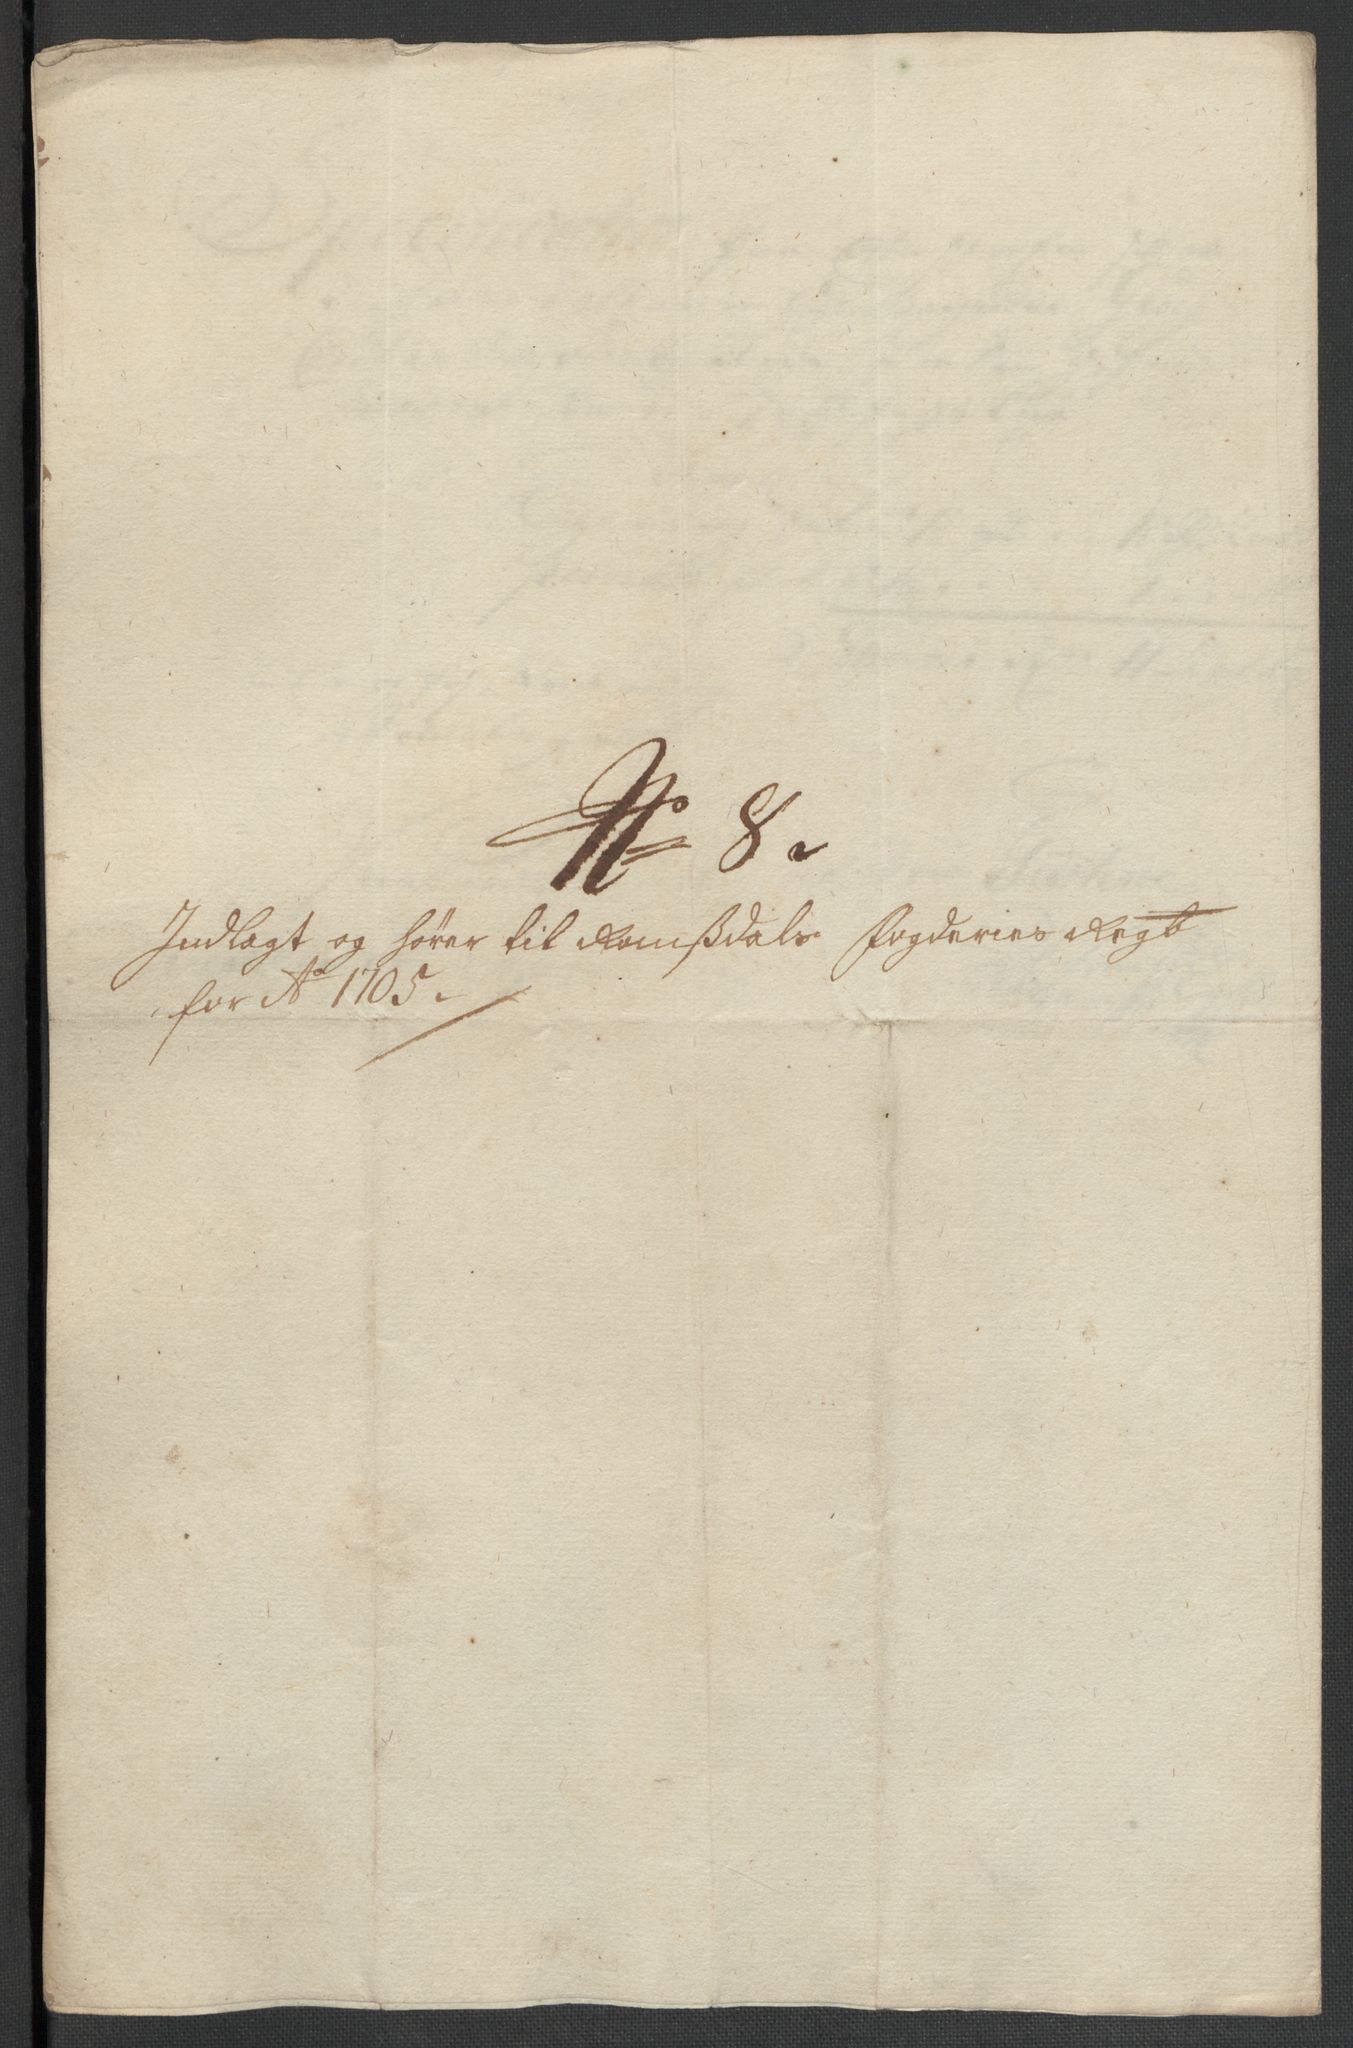 No 8.
Indlagt og hører til Romßdals Fogderies Regb
for Ao 1705.